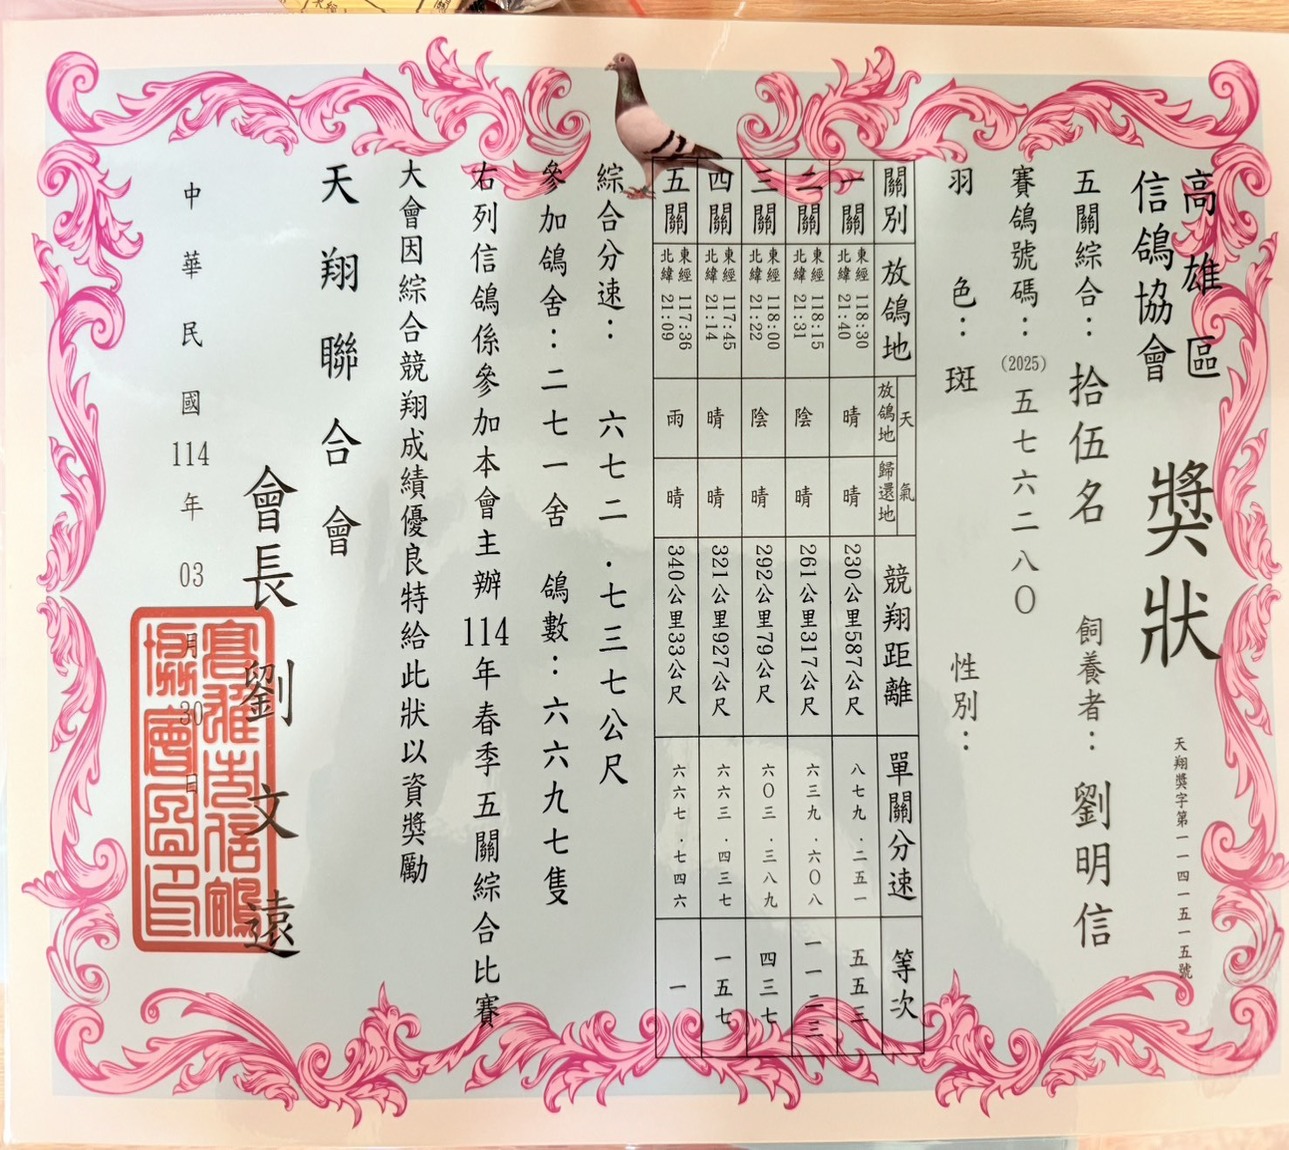 高雄區
信鴿協會
獎狀
天翔獎字第一一四一五一五號
五關綜合：拾伍名 飼養者：劉明信
賽鴿號碼：(2025)五七六二八〇
羽色：斑 性別：
關別 放鴿地 天氣 放鴿地 歸還地 競翔距離 單關分速 等次
一關 東經 118:30 北緯 21:40 晴 晴 230公里587公尺 八七九.二五一 五五三
二關 東經 118:15 北緯 21:31 陰 晴 261公里317公尺 六三九.六〇八 一一二三
三關 東經 118:00 北緯 21:22 陰 晴 292公里79公尺 六〇三.三八九 四三七
四關 東經 117:45 北緯 21:14 晴 晴 321公里927公尺 六六三.四三七 一五七
五關 東經 117:36 北緯 21:09 雨 晴 340公里33公尺 六六七.七四六 一
綜合分速：六七二.七三七公尺
參加鴿舍：二七一舍 鴿數：六六九七隻
右列信鴿係參加本會主辦114年春季五關綜合比賽
大會因綜合競翔成績優良特給此狀以資獎勵
天翔聯合會
會長 劉文遠
中華民國114年03月30日
高雄市信鴿
協會圖印